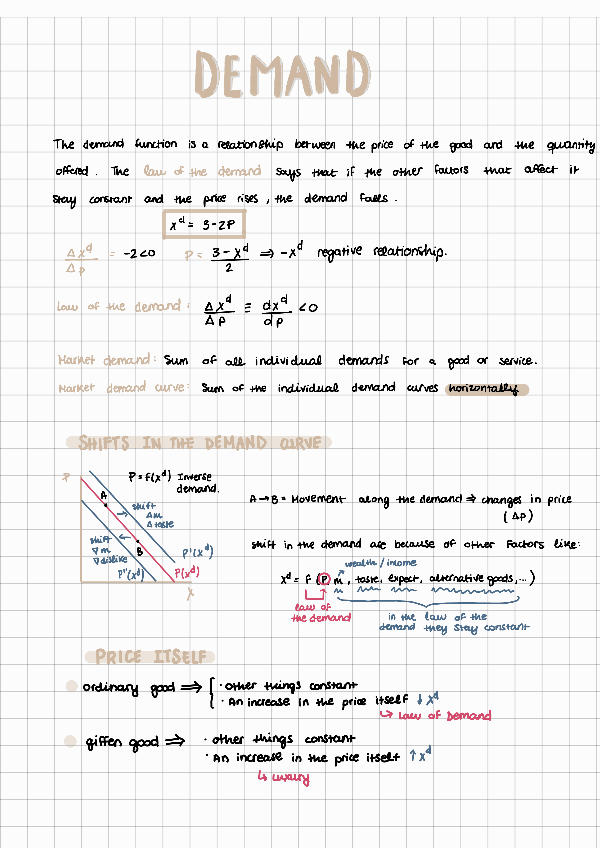 DEMAND
The demand function is a relationship between the price of the good and the quantity
offered. The law of the demand says that if the other factors that affect it
stay constant and the price rises, the demand falls.
x^d = 3-2P
Δx^d/Δp = -2<0 P = (3-x^d)/2 ⇒ -x^d negative relationship.
Law of the demand: Δx^d/ΔP ≡ dx^d/dp <0
Market demand: Sum of all individual demands for a good or service.
Market demand curve: Sum of the individual demand curves horizontally
SHIFTS IN THE DEMAND CURVE
P
P=f(x^d) Inverse
demand.
A
shift
Δm
Δtaste
shift
∇m
∇dislike
B
P'(x^d)
P''(x^d)
P(x^d)
X
A→B = Movement along the demand ⇒ changes in price
(Δp)
shift in the demand are because of other factors like:
wealth/income
x^d = f (P, m, taste, expect, alternative goods,...)
law of
the demand
in the law of the
demand they stay constant
PRICE ITSELF
ordinary good ⇒ { · other things constant
· An increase in the price itself ↓x^d
↳ Law of Demand
giffen good ⇒ · other things constant
· An increase in the price itself ↑x^d
↳ luxury